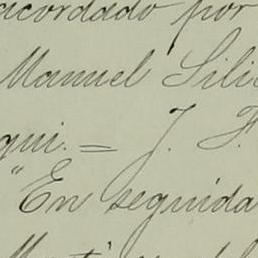 acordado por
Manuel Sili
qui. = J. F.
"En seguida